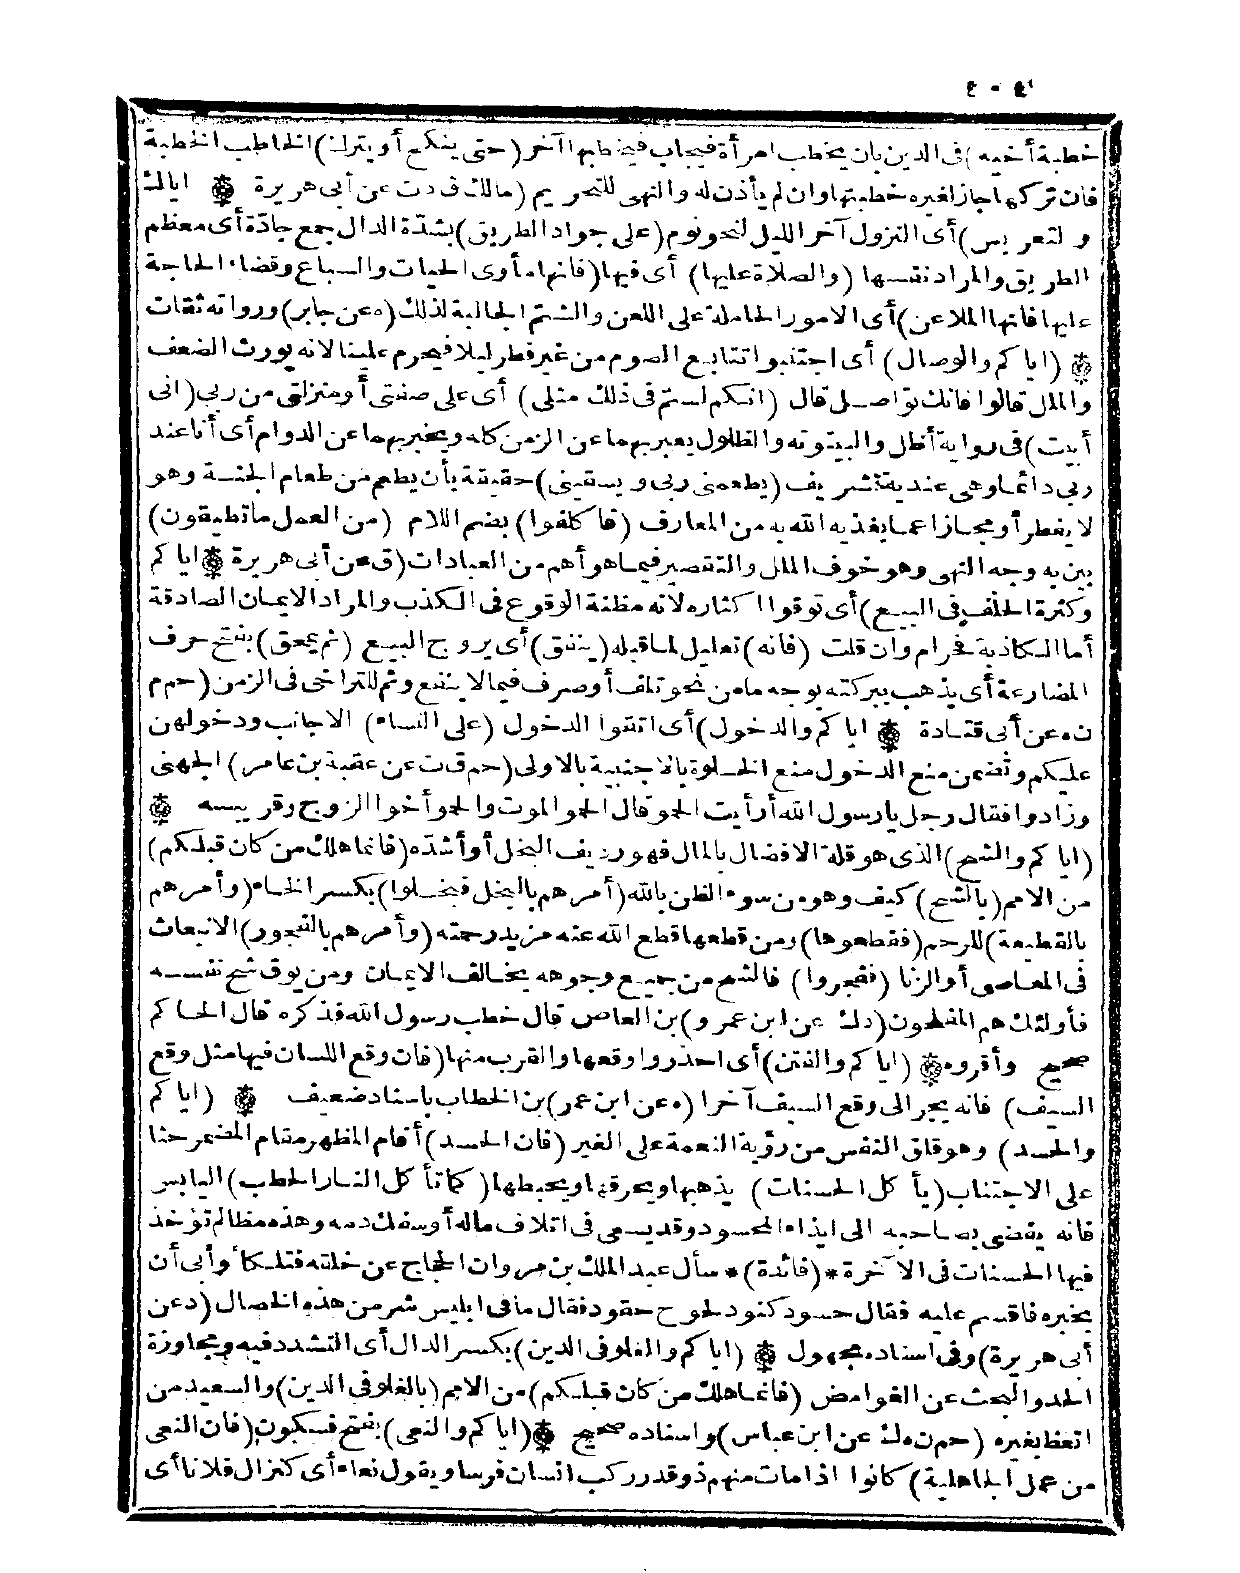 ٤٠٩
خطبة أخيه) فى الدين بان يخطب امرأة فيجاب فيخطبها آخر (حتى ينكح أو يترك) الخاطب الخطبة
فان تركها جاز لغيره خطبتها وان لم يأذن له والنهى للتحريم (مالك ق د ت عن أبى هريرة ۞ اياك
والتعريس) أى النزول آخر الليل لنحو نوم (على جواد الطريق) بشدّة الدال جمع جادّة أى معظم
الطريق والمراد نفسها (والصلاة عليها) أى فيها (فانها مأوى الحيات والسباع وقضاء الحاجة
عليها فانها الملاعن) أى الامور الحاملة على اللعن والشتم الجالبة لذلك (ه عن جابر) ورواته ثقات
۞ (اياكم والوصال) أى اجتنبوا تتابع الصوم من غير فطر ليلا فيحرم علينا لانه يورث الضعف
والملل قالوا فانك تواصل قال (انكم لستم فى ذلك مثلى) أى على صفتى أو منزلتى من ربى (انى
أبيت) فى رواية أظل والبيتوتة والظلول يعبر بهما عن الزمن كله ويخبر بهما عن الدوام أى أنا عند
ربى دائما وهى عندية تشريف (يطعمنى ربى ويسقينى) حقيقة بأن يطعم من طعام الجنة وهو
لا يفطر أو مجازا عما يغذيه الله به من المعارف (فاكلفوا) بضم اللام (من العمل ما تطيقون)
بين به وجه النهى وهو خوف الملل والتقصير فيما هو أهم من العبادات (ق عن أبى هريرة ۞ اياكم
وكثرة الحلف فى البيع) أى توقوا اكثاره لانه مظنة الوقوع فى الكذب والمراد الايمان الصادقة
أما الكاذبة فحرام وان قلت (فانه) تعليل لما قبله (ينفق) أى يروج البيع (ثم يمحق) بفتح حرف
المضارعة أى يذهب ببركته بوجه ما من نحو تلف أو صرف فيما لا ينفع وثم للتراخى فى الزمن (حم م
ن ه عن أبى قتادة ۞ اياكم والدخول) أى اتقوا الدخول (على النساء) الاجانب ودخولهن
عليكم وتضمن منع الدخول منع الخلوة بالاجنبية بالاولى (حم ق ت عن عقبة بن عامر) الجهنى
وزادوا فقال رجل يا رسول الله أرأيت الحمو قال الحمو الموت والحمو أخو الزوج وقريبه ۞
(اياكم والشح) الذى هو قلة الافضال بالمال فهو رديف البخل أو أشدّه (فانما هلك من كان قبلكم)
من الامم (بالشح) كيف وهو من سوء الظن بالله (أمرهم بالبخل فبخلوا) بكسر الخاء (وأمرهم
بالقطيعة) للرحم (فقطعوها) ومن قطعها قطع الله عنه مزيد رحمته (وأمرهم بالفجور) الانبعاث
فى المعاصى أو الزنا (ففجروا) فالشح من جميع وجوهه يخالف الايمان ومن يوق شح نفسه
فأولئك هم المفلحون (د ك عن ابن عمرو) بن العاص قال خطب رسول الله فذكره قال الحاكم
صحيح وأقروه ۞ (اياكم والفتن) أى احذروا وقعها والقرب منها (فان وقع اللسان فيها مثل وقع
السيف) فانه يجر الى وقع السيف آخرا (ه عن ابن عمر) بن الخطاب باسناد ضعيف ۞ (اياكم
والحسد) وهو قلق النفس من رؤية النعمة على الغير (فان الحسد) أقام المظهر مقام المضمر حثا
على الاجتناب (يأكل الحسنات) يذهبها ويحرقها ويحبطها (كما تأكل النار الحطب) اليابس
فانه يفضى بصاحبه الى ايذاء المحسود وقد يسعى فى اتلاف ماله أو سفك دمه وهذه مظالم تؤخذ
فيها الحسنات فى الآخرة * (فائدة) * سأل عبد الملك بن مروان الحجاج عن خلقه فتلكأ وأبى أن
يخبره فاقسم عليه فقال حسود كنود لحوح حقود فقال ما فى ابليس شر من هذه الخصال (د عن
أبى هريرة) وفى اسناده مجهول ۞ (اياكم والغلو فى الدين) بكسر الدال أى التشدد فيه ومجاوزة
الحد والبحث عن الغوامض (فانما هلك من كان قبلكم) من الامم (بالغلو فى الدين) والسعيد من
اتعظ بغيره (حم ن ه ك عن ابن عباس) واسناده صحيح ۞ (اياكم والنعى) بفتح فسكون (فان النعى
من عمل الجاهلية) كانوا اذا مات منهم ذو قدر ركب انسان فرسا ويقول نعاء أى كنزال فلانا أى